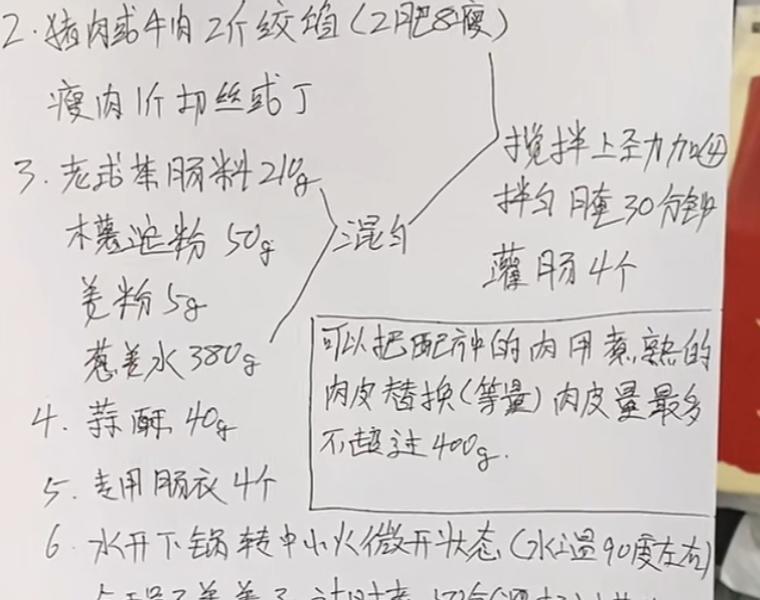 2.猪肉或牛肉2斤绞馅(2肥8瘦)
瘦肉1斤切丝或丁
3.老式茶肠料210g
木薯淀粉50g
姜粉5g
葱姜水380g
混匀
搅拌上至力加④
拌匀腌30分钟
灌肠4个
可以把配方中的肉用煮熟的
肉皮替换(等量)肉皮量最多
不超过400g.
4.蒜酥40g
5.专用肠衣4个
6.水开下锅转中小火微开状态(水温90度左右)